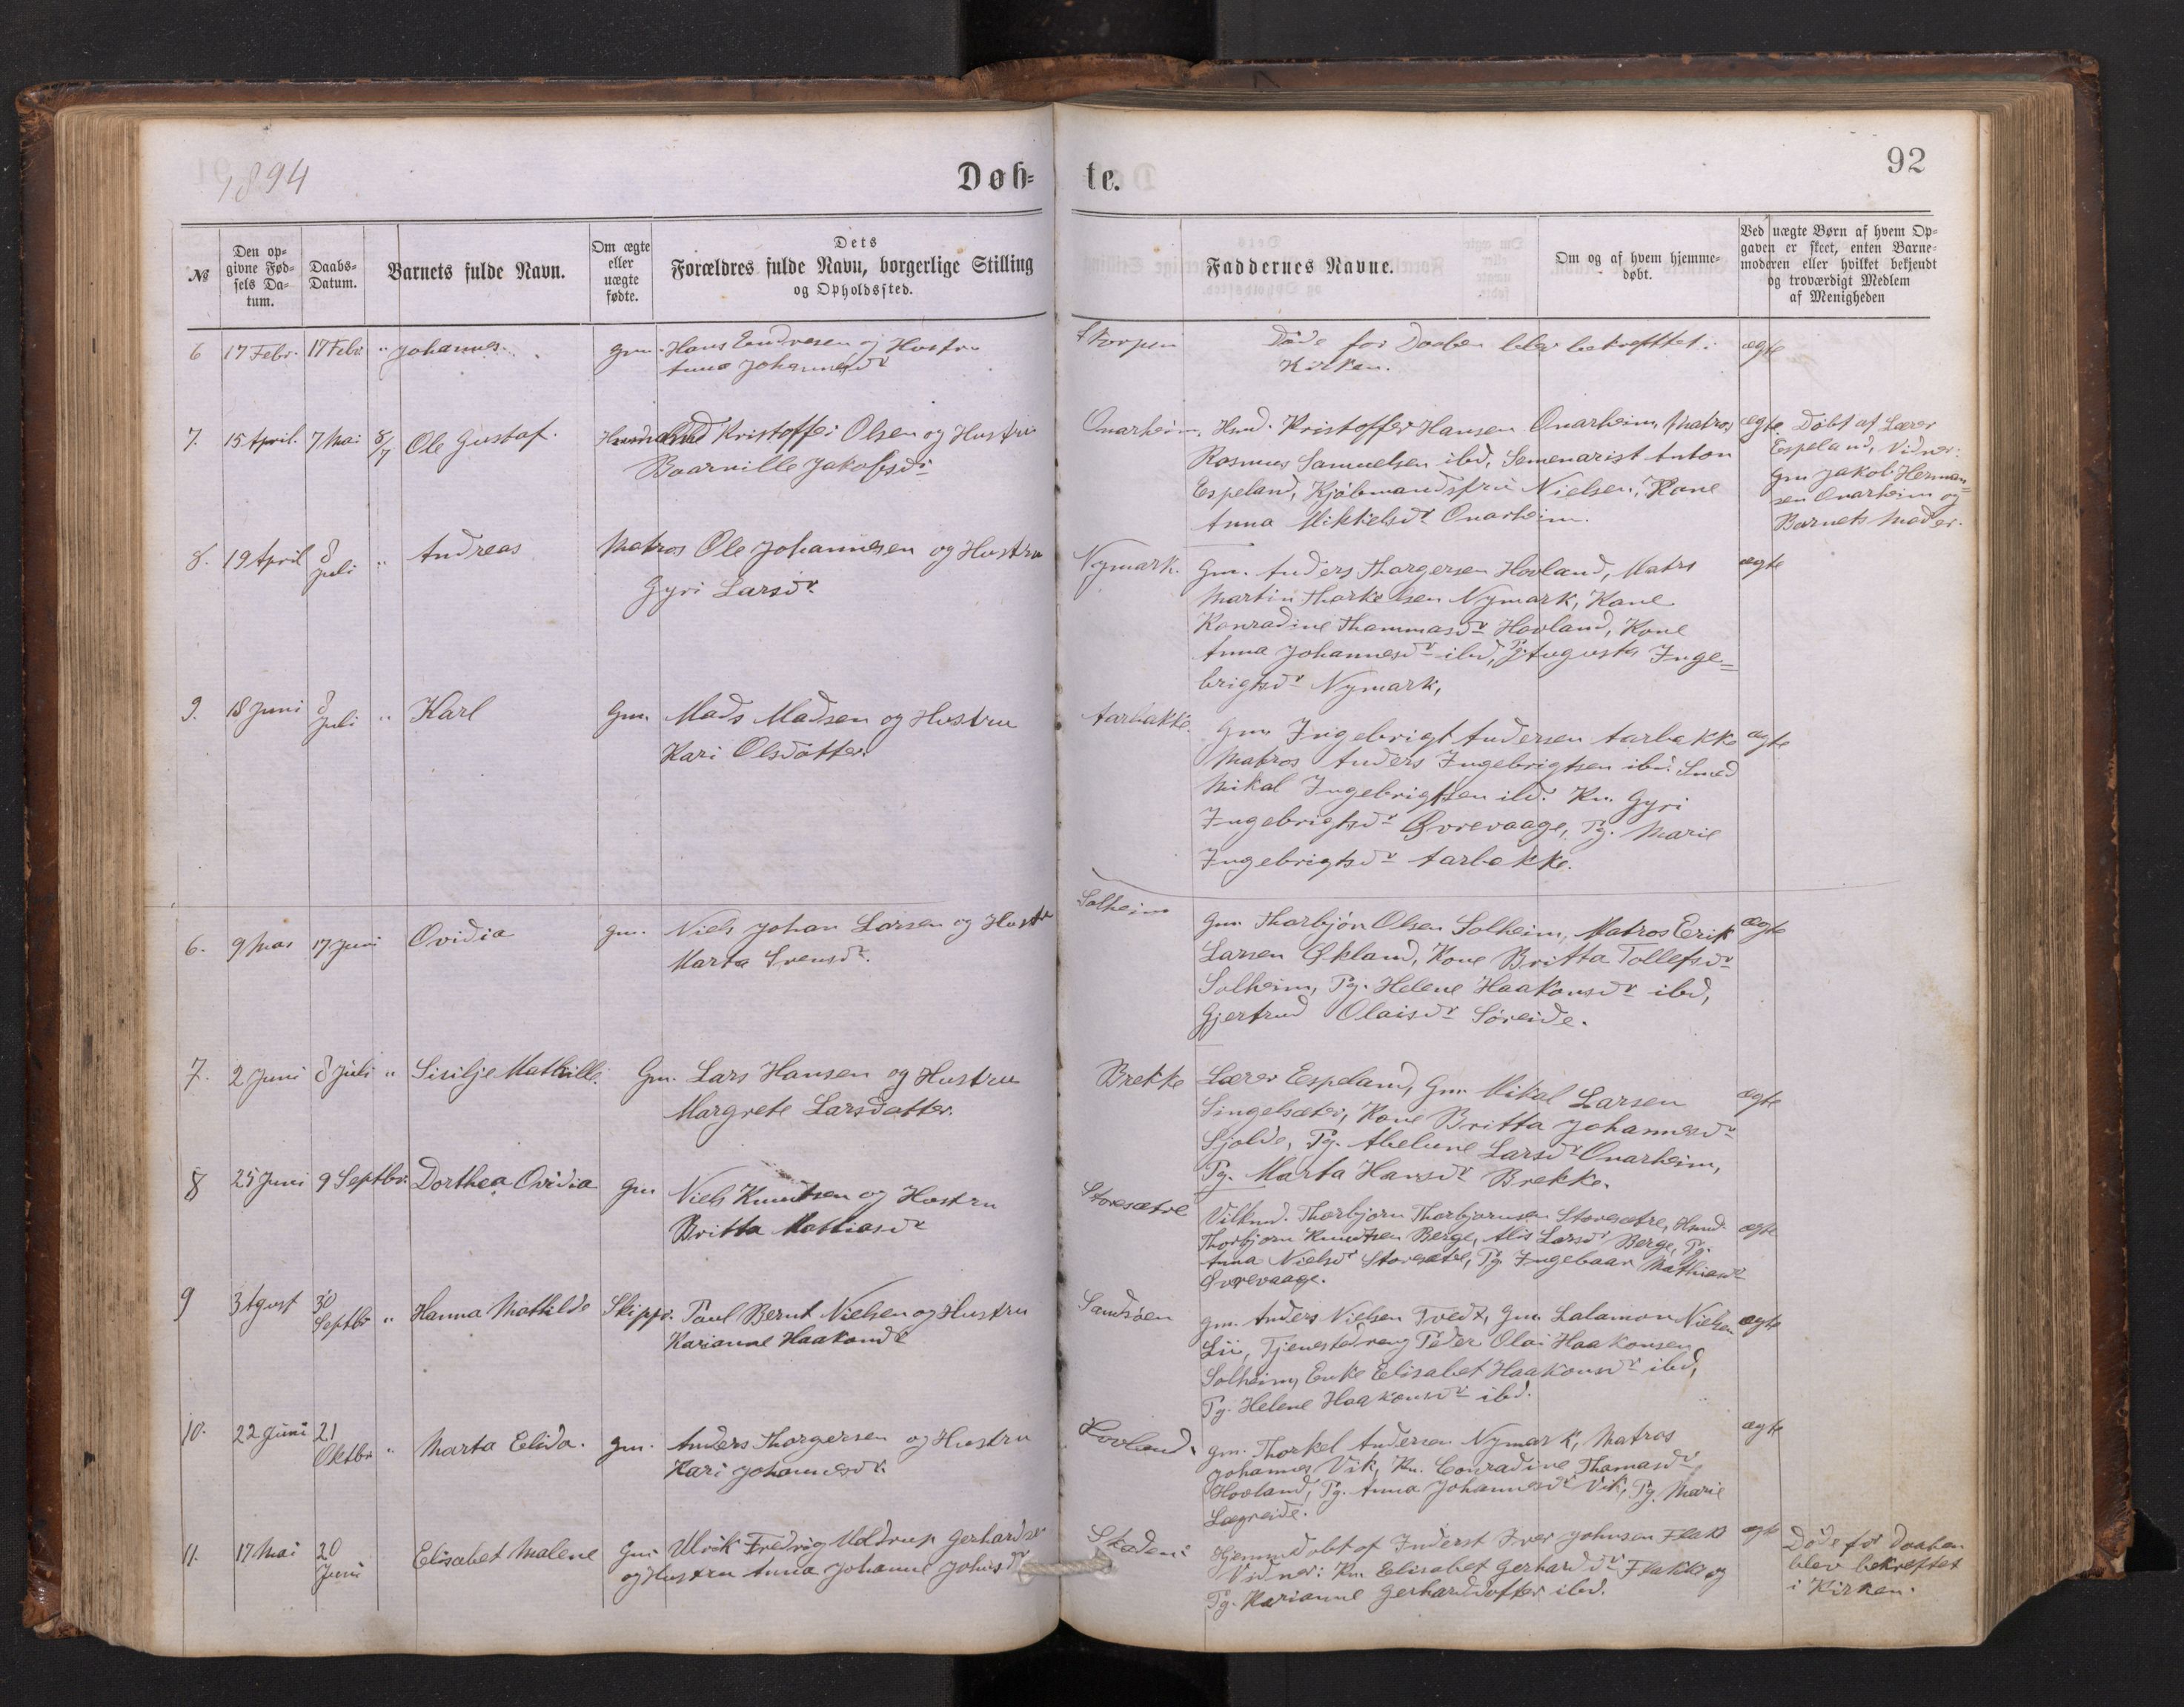 1894
Døb=
te.
92
№
Den op=
givne Fød=
sels Da=
tum.
Daabs=
Datum.
Barnets fulde Navn.
Om ægte
eller
uægte
fødte.
Dets
Forældres fulde Navn, borgerlige Stilling
og Opholdssted.
Faddernes Navne.
Om og af hvem hjemme=
døbt.
Ved uægte Børn af hvem Op=
gaven er skeet, enten Barne=
moderen eller hvilket bekjendt
og troværdigt Medlem
af Menigheden
6 17 Febr. 17 Febr. " Johannes. gm. Hans Endresen og Hustru
Anna Johannesdr
Skorpen Døde før Daaben blev bekræftet i ægte
Kirken.
7. 15 April. 7 Mai 8/7 Ole Gustaf. Husmand Kristoffer Olsen og Hustru
Jakobsdr
Onarheim, Hmd. Kristoffer Hansen Onarheim, Matros ægte
Rasmus Samuelsen ibd, Semenarist Anton
Espeland, Kjøbmandsfru Nielsen, Kone
Anna Mikkelsdr Onarheim.
Døbt af Lærer
Espeland, Vidner:
gm Jakob Herman=
sen Onarheim og
Barnets Moder.
8. 19 April 8 Juli " Andreas Matros Ole Johannesen og Hustru
Gyri Larsdr
Nymark. Gm. Anders Thorgersen Hovland, Matrs ægte
Martin Thorkelsen Nymark, Kone
Konradine Thommasdr Hovland, Kone
Anna Johannesdr ibd, Pg. Augusta Inge=
brigtsdr Nymark,
9. 18 Juni 8 Juli " Karl Gm. Mads Madsen og Hustru
Kari Olsdatter.
Aarbakke. Gm. Ingebrigt Andersen Aarbakke ægte
Matros Anders Ingebrigtsen ibd. Smed
Mikal Ingebrigtsen ibd. Kn. Gyri
Ingebrigtsdr Øvrevaage, Pg. Marie
Ingebrigtsdr Aarbakke.
6. 9 Mai 17 Juni Ovidia gm. Niels Johan Larsen og Hustr
Marta Svensdr.
Solheim Gm. Thorbjørn Olsen Solheim, Matros Erik ægte
Larsen Økland, Kone Britta Tollefsdr
Solheim, Pg. Helene Haakonsdr ibd,
Gjertrud Olaisdr Søreide.
7. 2 Juni 8 Juli " Sisilje Mathilde. Gm. Lars Hansen og Hustru
Margrete Larsdatter.
Brekke Lærer Espeland, Gm. Mikal Larsen ægte
Singelsæter, Kone Britta Johannesdr
Gjolde, Pg. Abelune Larsdr Onarheim,
Pg. Marta Hansdr Brekke.
8 25 Juni 9 Septbr. Dorthea Ovidia gm Niels Knudtsen og Hustru
Britta Mathiasdr
Storesætre Vilkmd. Thorbjørn Thorbjørnsen Storesætre, Hmd. ægte
Thorbjørn Knudtsen Berge, Alis Larsdr Berge, Pg.
Anna Nielsdr Storesætre, Pg. Ingebaar Mathiasdr
Øvrevaage.
9 3 Agust 30 Septbr " Hanna Mathilde Skippr. Paul Bernt Nielsen og Hustru
Karianne Haakonsdr
Sandsøen gm. Anders Nielsen Tvedt, gm. Salamon Nielsen ægte
Lii, Tjenestedreng Peder Olai Haakonsen
Solheim, Enke Elisabet Haakonsdr ibd,
Pg. Helene Haakonsdr ibd.
10. 22 Juni 21 Oktbr " Marta Elida. gm. Anders Thorgersen og Hustru
Kari Johannesdr
Hovland. gm. Thorkel Andersen Nymark, Matros ægte
Johannes Vik, Kn. Conradine Thomasdr
Hovland, Pg. Anna Johannesdr Vik, Pg. Marie
Lægreide.
11. 17 Mai 20 Juni Elisabet Malene Gm Ulrik Fredrig Meldrup Gerhardsen
og Hustru Anna Johanne Johnsdr
Hjemmedøbt af Inderst Iver Johnsen Flaks ægte
Vidner: Kn. Elisabet Gerhardsdr Flakke og
Pg. Karianne Gerhardsdotter ibd.
Døde før Daaben
blev bekræftet
i Kirken.